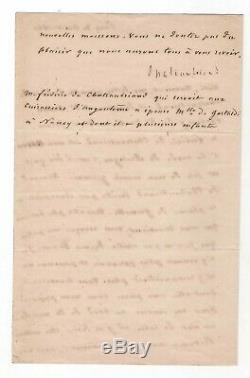 nouvelles moissons. Vous ne doutez pas du
plaisir que nous aurons tous à vous revoir.
Chateaubriand
M. Frédéric de Chateaubriand qui servait aux
Cuirassiers d'Angoulême a épousé Mlle de
à Nancy et dont il a plusieurs enfants